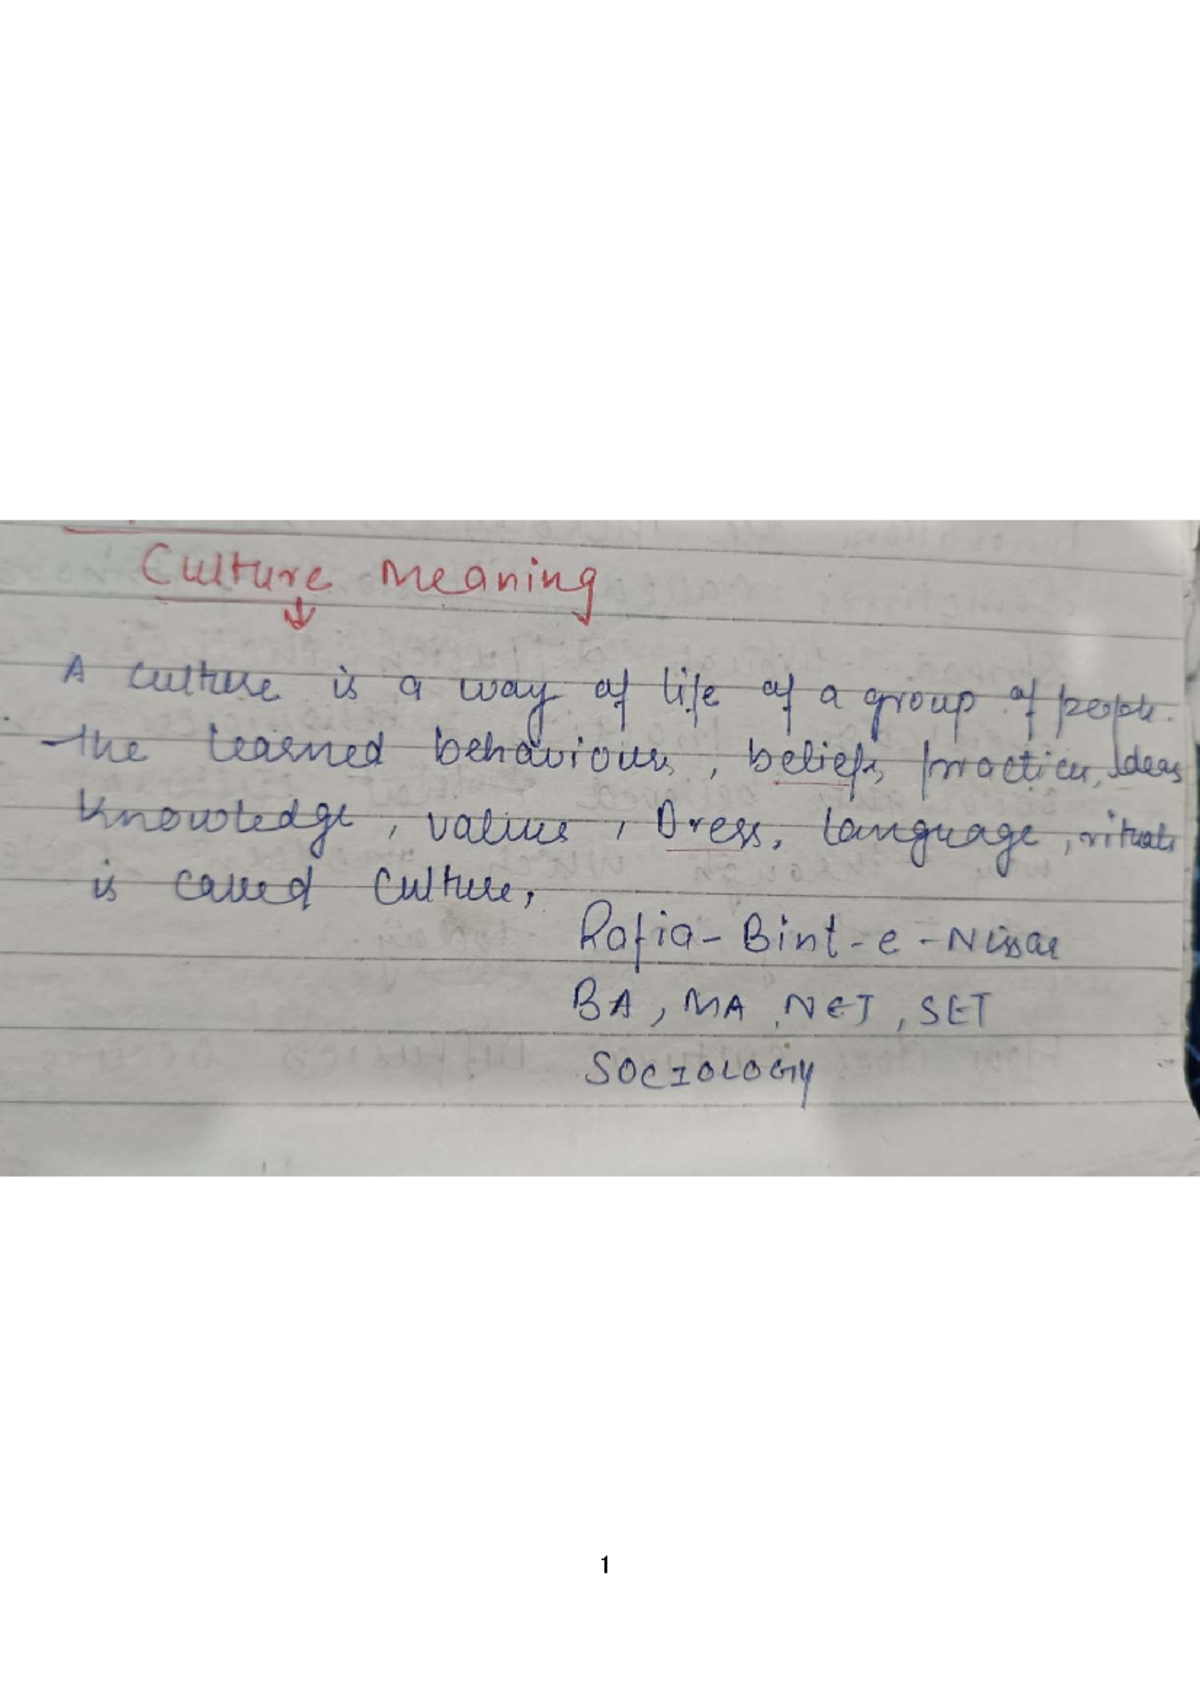 Culture Meaning
A culture is a way of life of a group of people.
The learned behaviours, beliefs, practices, Ideas
Knowledge, values, Dress, language, rituals
is called culture,
Rafia-Bint-e-Nissar
BA, MA, NET, SET
SOCIOLOGY
1